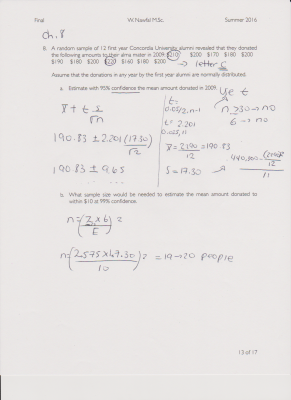 Final W. Nawfel M.Sc. Summer 2016
ch.8
8. A random sample of 12 first year Concordia University alumni revealed that they donated
the following amounts to their alma mater in 2009: $210 $200 $170 $180 $200
$190 $180 $200 $220 $160 $180 $200
→ letter
Assume that the donations in any year by the first year alumni are normally distributed.
a. Estimate with 95% confidence the mean amount donated in 2009.
use t
x̄ ± t s/√n
t =
0.05/2, n-1
n >30 → no
6 → no
t = 2.201
0.025, 11
190.83 ± 2.201 (17.30)/√12
x̄ = 2290/12 = 190.83
190.83 ± 9.65
S = 17.30
b. What sample size would be needed to estimate the mean amount donated to
within $10 at 99% confidence.
n = (Z × 6 / E)² =
n = (2.575 × 17.30 / 10)² = 19 → 20 people
13 of 17